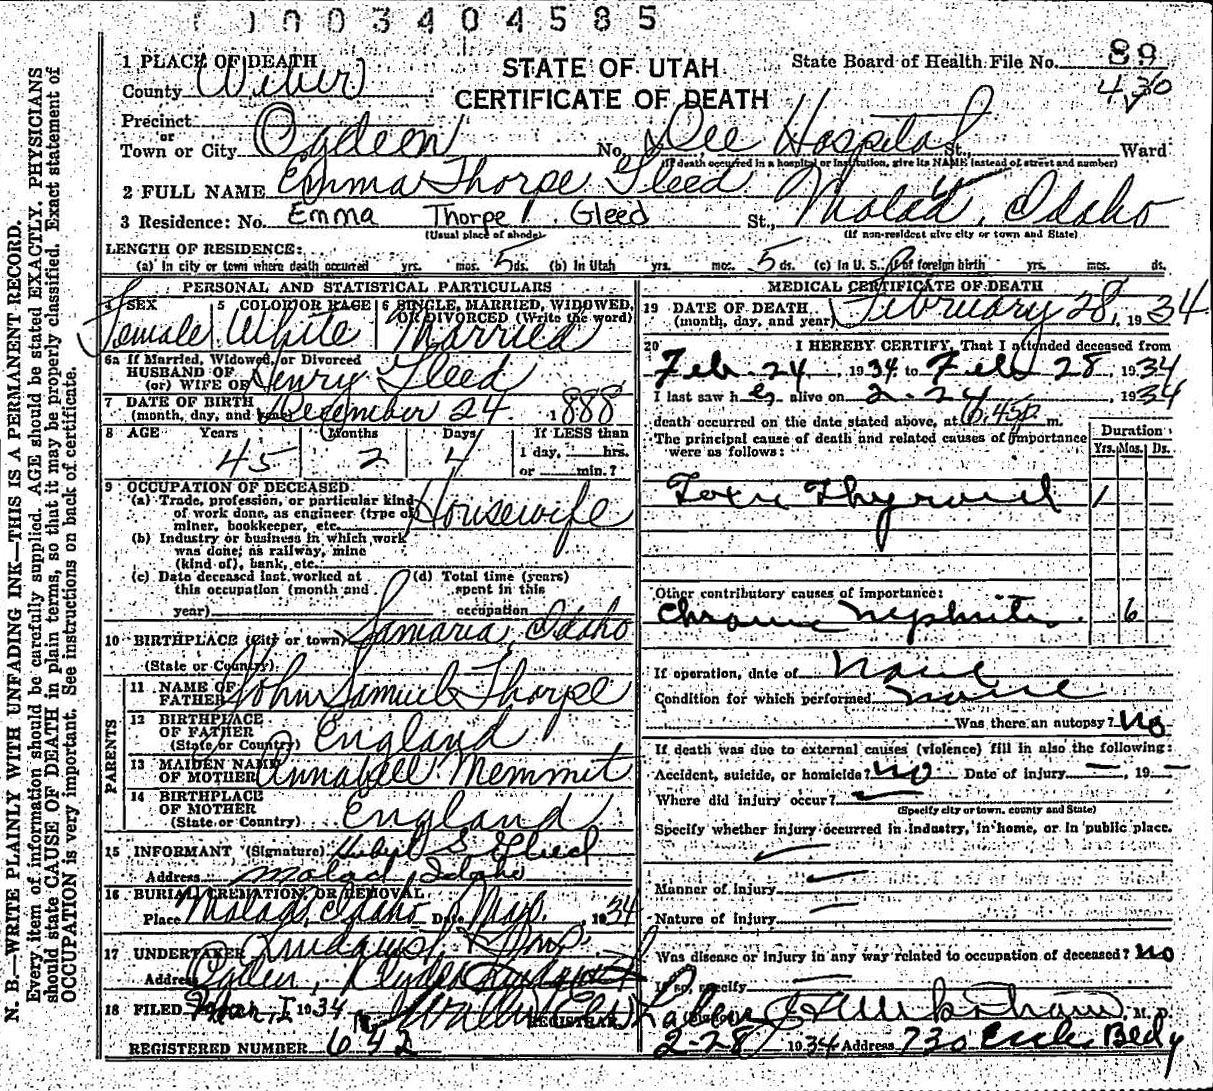 1003404585
1 PLACE OF DEATH
County Weber
STATE OF UTAH
CERTIFICATE OF DEATH
State Board of Health File No. 89
430
Precinct
or
Town or City Ogdeen No. Dee Hospital St., Ward
(If death occurred in a hospital or institution, give its NAME instead of street and number)
2 FULL NAME Emma Thorpe Gleed
3 Residence: No. Emma Thorpe Gleed St., Malad, Idaho
(Usual place of abode) (If non-resident give city or town and State)
LENGTH OF RESIDENCE:
(a) In city or town where death occurred yrs. mos. 5 ds. (b) In Utah yrs. mos. 5 ds. (c) In U. S., if of foreign birth yrs. mos. ds.
PERSONAL AND STATISTICAL PARTICULARS
4 SEX Female
5 COLOR OR RACE White
6 SINGLE, MARRIED, WIDOWED, OR DIVORCED (Write the word) Married
6a If Married, Widowed, or Divorced
HUSBAND OF
(or) WIFE OF Henry Gleed
7 DATE OF BIRTH
(month, day, and year) December 24 1888
8 AGE Years Months Days If LESS than
45 2 4 1 day, hrs.
or min.?
9 OCCUPATION OF DECEASED
(a) Trade, profession, or particular kind
of work done, as engineer (type of
miner, bookkeeper, etc. Housewife
(b) Industry or business in which work
was done; as railway, mine
(kind of), bank, etc.
(c) Date deceased last worked at
this occupation (month and
year)
(d) Total time (years)
spent in this
occupation
10 BIRTHPLACE (City or town) Samaria, Idaho
(State or Country)
PARENTS
11 NAME OF
FATHER John Samuel Thorpe
12 BIRTHPLACE
OF FATHER
(State or Country) England
13 MAIDEN NAME
OF MOTHER Annabell Memmit
14 BIRTHPLACE
OF MOTHER
(State or Country) England
15 INFORMANT (Signature) S Gleed
Address Malad, Idaho
16 BURIAL, CREMATION, OR REMOVAL
Place Malad, Idaho Date Mar. , 1934
17 UNDERTAKER Lindquist & Sons
Address Ogden,
18 FILED Mar, 1 1934
REGISTRAR
REGISTERED NUMBER 642
MEDICAL CERTIFICATE OF DEATH
19 DATE OF DEATH
(month, day, and year) February 28, 1934
20 I HEREBY CERTIFY, That I attended deceased from
Feb. 24, 1934 to Feb 28, 1934
I last saw her alive on 2-24, 1934
death occurred on the date stated above, at 6:45p m.
The principal cause of death and related causes of importance
were as follows:
Duration
Yrs. Mos. Ds.
Toxic Thyroid 1
Other contributory causes of importance:
Chronic Nephritis 6
If operation, date of None
Condition for which performed None
Was there an autopsy? No
If death was due to external causes (violence) fill in also the following:
Accident, suicide, or homicide? no Date of injury — , 19 —
Where did injury occur?
(Specify city or town, county and State)
Specify whether injury occurred in industry, in home, or in public place.
Manner of injury
Nature of injury
Was disease or injury in any way related to occupation of deceased? No
If so, specify
(Signed) M. D.
2-28 1934 Address 730 Eccles Bldg
N. B.—WRITE PLAINLY WITH UNFADING INK—THIS IS A PERMANENT RECORD.
Every item of information should be carefully supplied. AGE should be stated EXACTLY. PHYSICIANS
should state CAUSE OF DEATH in plain terms, so that it may be properly classified. Exact statement of
OCCUPATION is very important. See instructions on back of certificate.